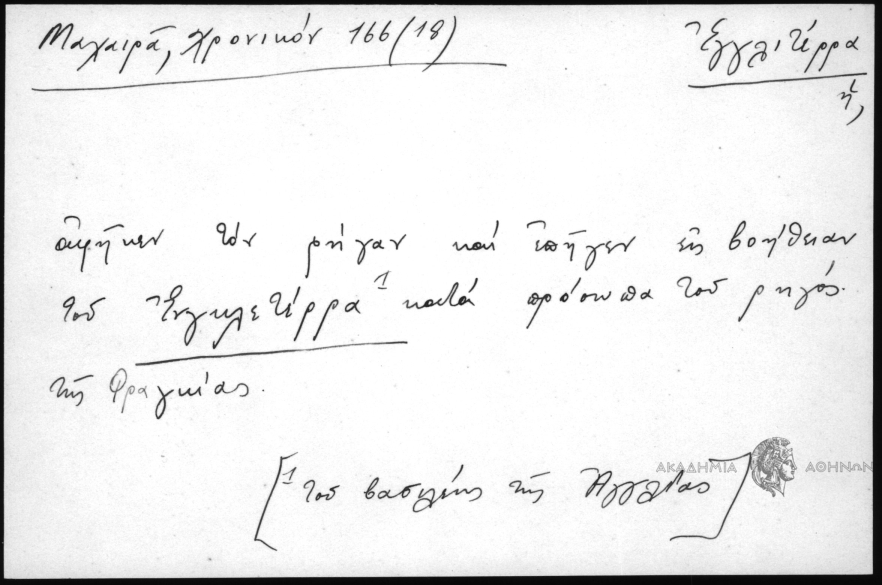 Μαχαιρᾶ, Χρονικόν 166 (18)
Ἐγγλιτέρρα
ἡ,
ἀφῆκεν τὸν ρήγαν καὶ ἐπῆγεν εἰς βοήθειαν
τοῦ Ἐνγκλετέρρα¹ κατὰ πρόσωπα τοῦ ρηγός
τῆς Φραγκίας.
[¹ τοῦ βασιλέως τῆς Ἀγγλίας]
ΑΚΑΔΗΜΙΑ ΑΘΗΝΩΝ